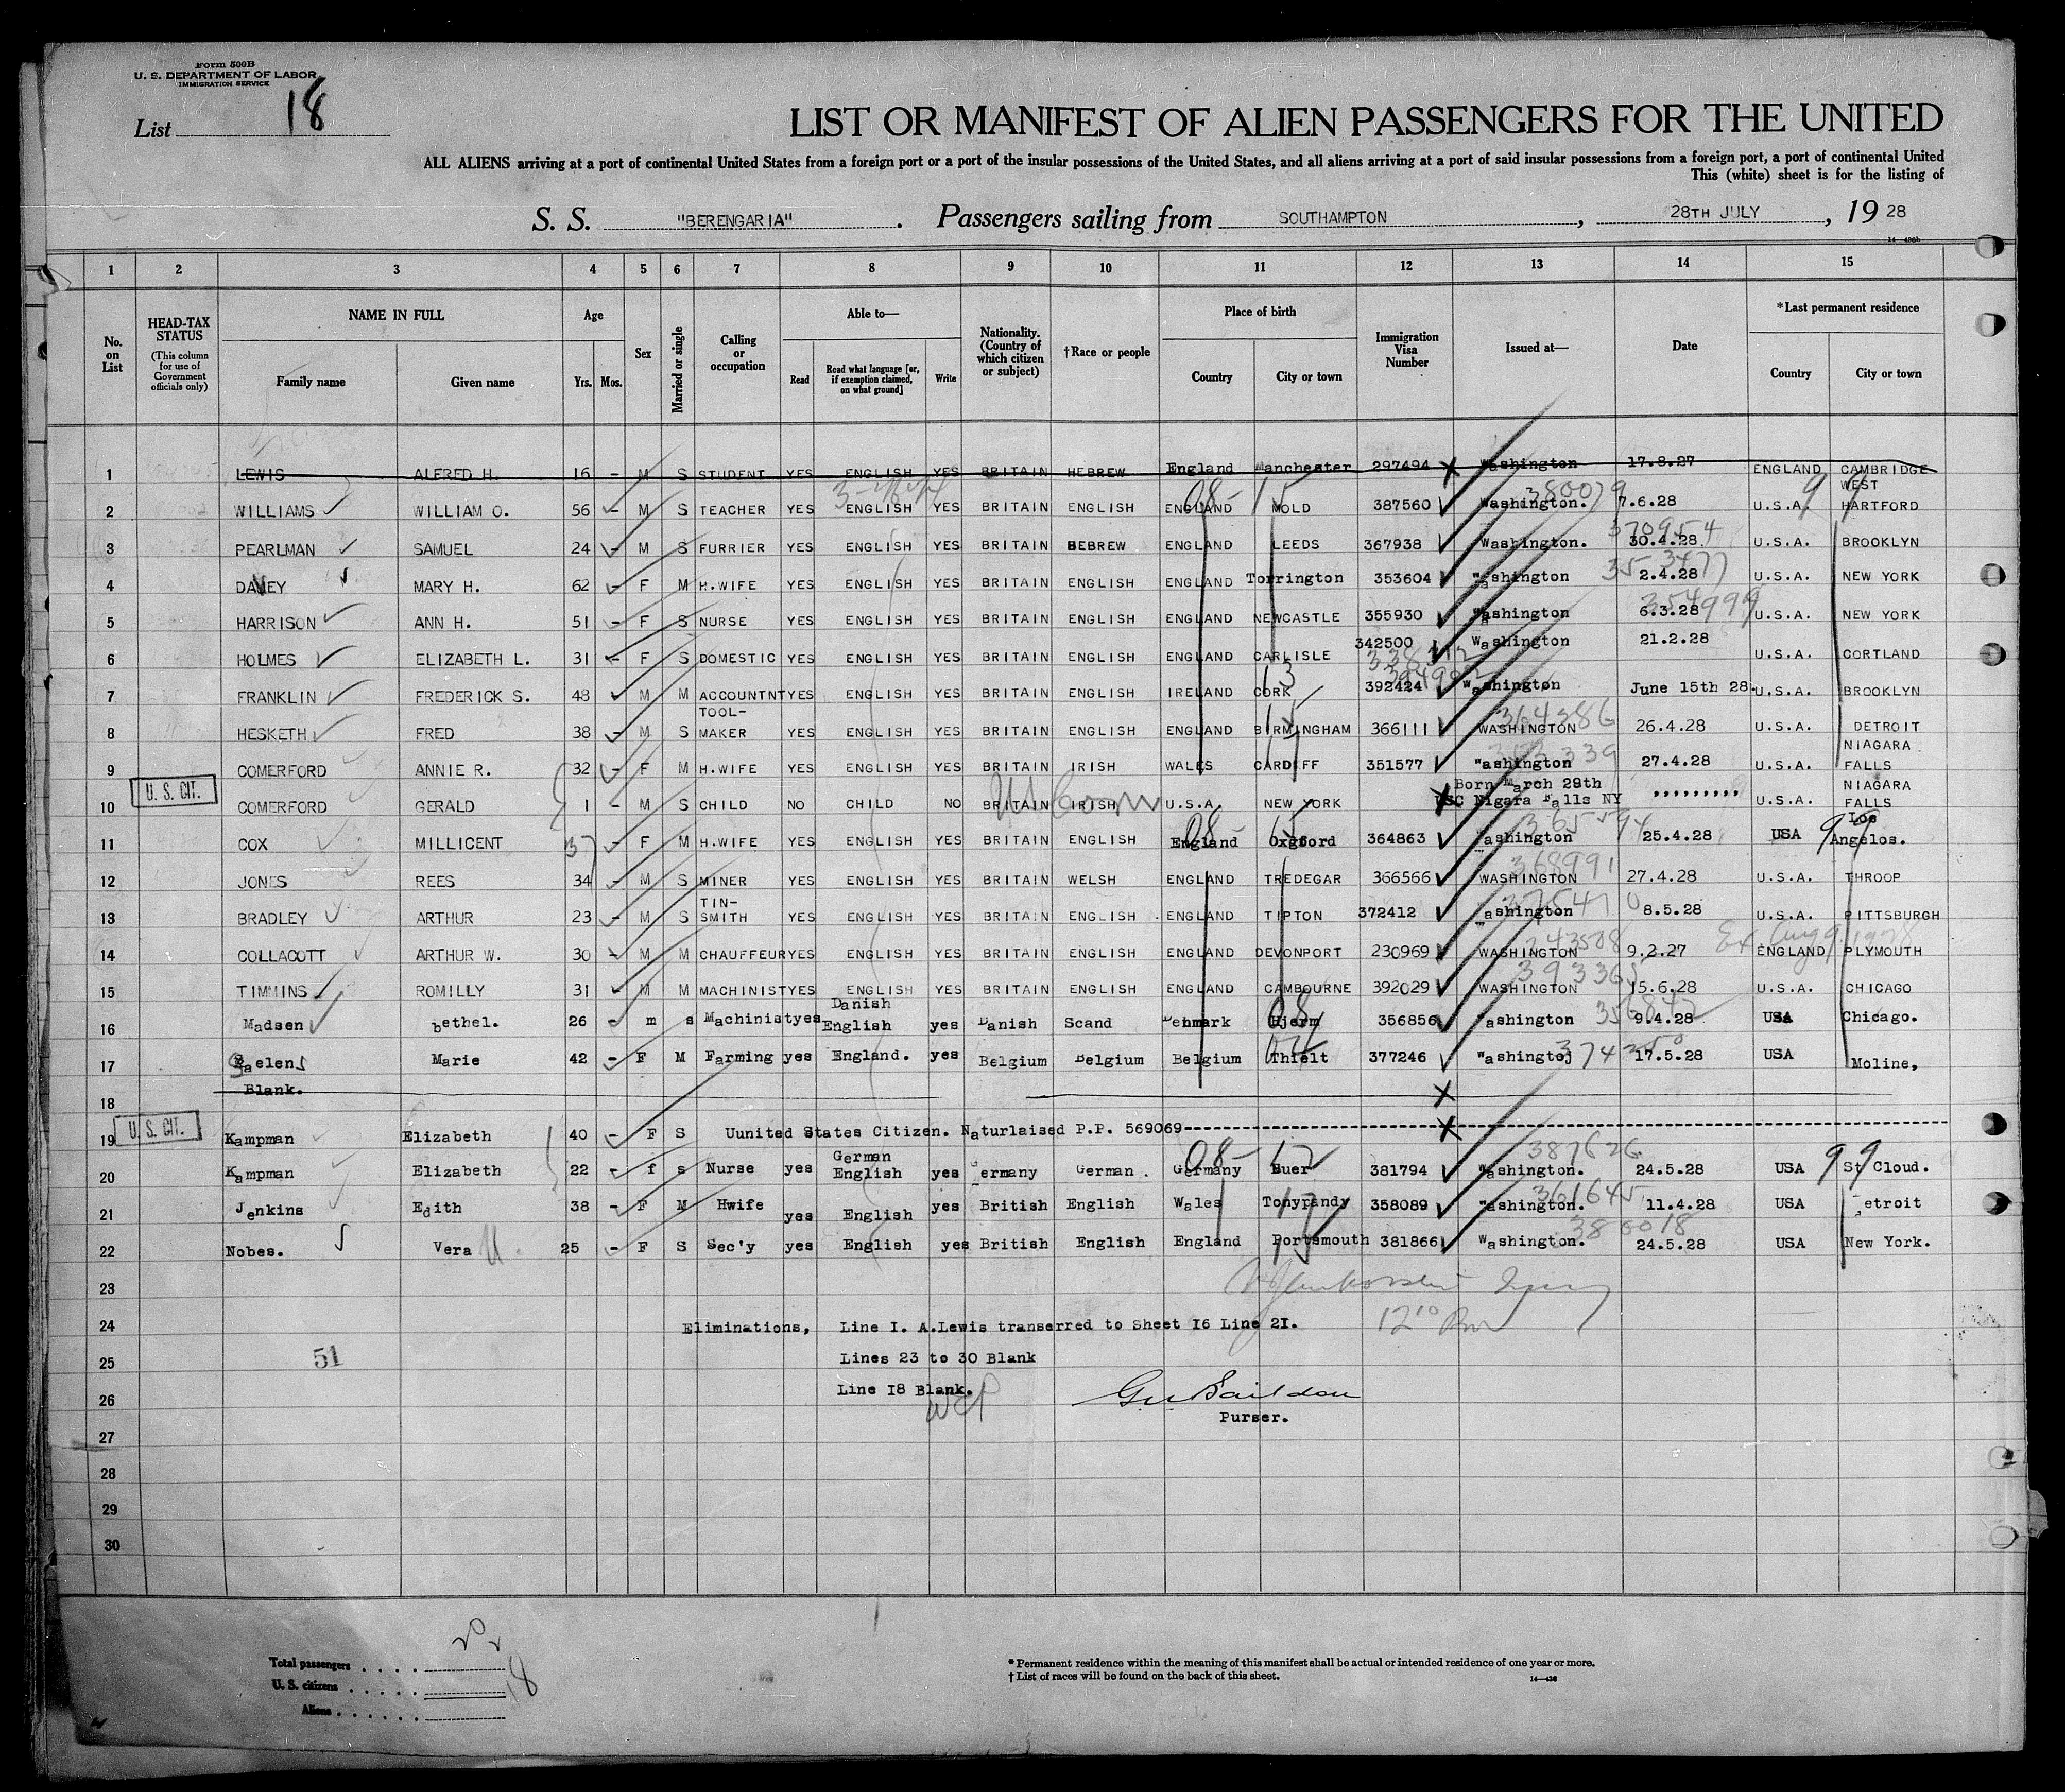 Form 500B
U. S. DEPARTMENT OF LABOR
IMMIGRATION SERVICE
List 18
LIST OR MANIFEST OF ALIEN PASSENGERS FOR THE UNITED
ALL ALIENS arriving at a port of continental United States from a foreign port or a port of the insular possessions of the United States, and all aliens arriving at a port of said insular possessions from a foreign port, a port of continental United
This (white) sheet is for the listing of
S. S. "BERENGARIA". Passengers sailing from SOUTHAMPTON, 28TH JULY, 19 28
14—430b
1 2 3 4 5 6 7 8 9 10 11 12 13 14 15
No. on List
HEAD-TAX STATUS (This column for use of Government officials only)
NAME IN FULL
Family name Given name
Age
Yrs. Mos.
Sex
Married or single
Calling or occupation
Able to—
Read
Read what language [or, if exemption claimed, on what ground]
Write
Nationality. (Country of which citizen or subject)
†Race or people
Place of birth
Country City or town
Immigration Visa Number
Issued at—
Date
*Last permanent residence
Country City or town
1 LEWIS ALFRED H. 16 - M S STUDENT YES ENGLISH YES BRITAIN HEBREW England Manchester 297494 Washington 17.8.27 ENGLAND CAMBRIDGE
2 WILLIAMS WILLIAM O. 56 - M S TEACHER YES ENGLISH YES BRITAIN ENGLISH ENGLAND MOLD 387560 Washington. 380079 7.6.28 U.S.A. WEST HARTFORD
3 PEARLMAN SAMUEL 24 - M S FURRIER YES ENGLISH YES BRITAIN HEBREW ENGLAND LEEDS 367938 Washington. 370954 30.4.28 U.S.A. BROOKLYN
4 DAVEY MARY H. 62 - F M H.WIFE YES ENGLISH YES BRITAIN ENGLISH ENGLAND Torrington 353604 Washington 2.4.28 U.S.A. NEW YORK
5 HARRISON ANN H. 51 - F S NURSE YES ENGLISH YES BRITAIN ENGLISH ENGLAND NEWCASTLE 355930 Washington 6.3.28 U.S.A. NEW YORK
6 HOLMES ELIZABETH L. 31 - F S DOMESTIC YES ENGLISH YES BRITAIN ENGLISH ENGLAND CARLISLE 342500 Washington 21.2.28 U.S.A. CORTLAND
7 FRANKLIN FREDERICK S. 48 M M ACCOUNTNT YES ENGLISH YES BRITAIN ENGLISH IRELAND CORK 392424 Washington June 15th 28. U.S.A. BROOKLYN
8 HESKETH FRED 38 - M S TOOL-MAKER YES ENGLISH YES BRITAIN ENGLISH ENGLAND BIRMINGHAM 366111 WASHINGTON 364386 26.4.28 U.S.A. DETROIT
9 COMERFORD ANNIE R. 32 - F M H.WIFE YES ENGLISH YES BRITAIN IRISH WALES CARDIFF 351577 Washington 27.4.28 U.S.A. NIAGARA FALLS
U. S. CIT.
10 COMERFORD GERALD 1 - M S CHILD NO CHILD NO BRITAIN IRISH U.S.A. NEW YORK Born March 29th USC Nigara Falls NY ,,,,,,,,, U.S.A. NIAGARA FALLS
11 COX MILLICENT 37 - F M H.WIFE YES ENGLISH YES BRITAIN ENGLISH England Oxford 364863 Washington 365594 25.4.28 USA Los Angelos.
12 JONES REES 34 - M S MINER YES ENGLISH YES BRITAIN WELSH ENGLAND TREDEGAR 366566 WASHINGTON 368991 27.4.28 U.S.A. THROOP
13 BRADLEY ARTHUR 23 - M S TIN-SMITH YES ENGLISH YES BRITAIN ENGLISH ENGLAND TIPTON 372412 Washington 8.5.28 U.S.A. PITTSBURGH
14 COLLACOTT ARTHUR W. 30 - M M CHAUFFEUR YES ENGLISH YES BRITAIN ENGLISH ENGLAND DEVONPORT 230969 WASHINGTON 243508 9.2.27 ENGLAND PLYMOUTH
15 TIMMINS ROMILLY 31 - M M MACHINIST YES ENGLISH YES BRITAIN ENGLISH ENGLAND CAMBOURNE 392029 WASHINGTON 393365 15.6.28 U.S.A. CHICAGO
16 Madsen bethel. 26 - m s Machinist yes Danish English yes Danish Scand Denmark Hjerm 356856 Washington 356842 9.4.28 USA Chicago.
17 Saelens Marie 42 - F M Farming yes England. yes Belgium Belgium Belgium Thielt 377246 Washingtoj 17.5.28 USA Moline,
18 Blank.
U. S. CIT.
19 Kampman Elizabeth 40 - F S Uunited States Citizen. Naturlaised P.P. 569069
20 Kampman Elizabeth 22 - f s Nurse yes German English yes Germany German Germany Buer 381794 Washington. 387626 24.5.28 USA St Cloud.
21 Jenkins Edith 38 - F M Hwife yes English yes British English Wales Tonypandy 358089 Washington. 361645 11.4.28 USA Detroit
22 Nobes. Vera 25 - F S Sec'y yes English yes British English England Portsmouth 381866 Washington. 380018 24.5.28 USA New York.
23
24 Eliminations, Line I. A.Lewis transerred to Sheet I6 Line 2I.
25 51 Lines 23 to 30 Blank
26 Line I8 Blank.
Purser.
27
28
29
30
Total passengers
U. S. citizens 18
Aliens
* Permanent residence within the meaning of this manifest shall be actual or intended residence of one year or more.
† List of races will be found on the back of this sheet.
14—430